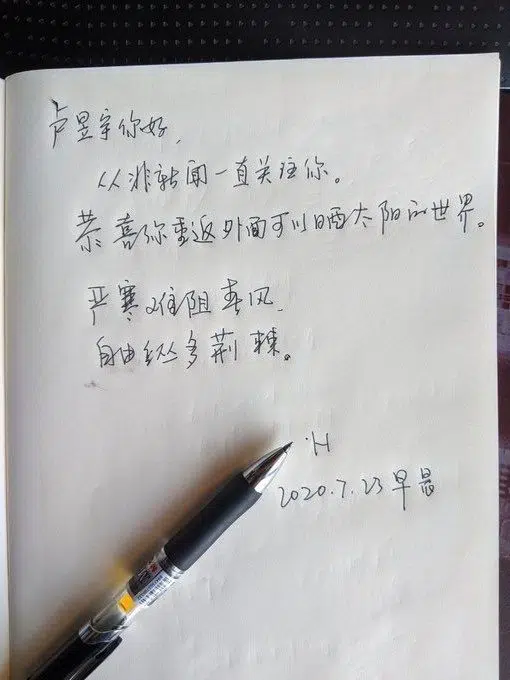 卢昱宇你好,
从非新闻一直关注你。
恭喜你重返外面可以晒太阳的世界。
严寒难阻春风、
自由丛多荆棘。
·H
2020.7.23 早晨